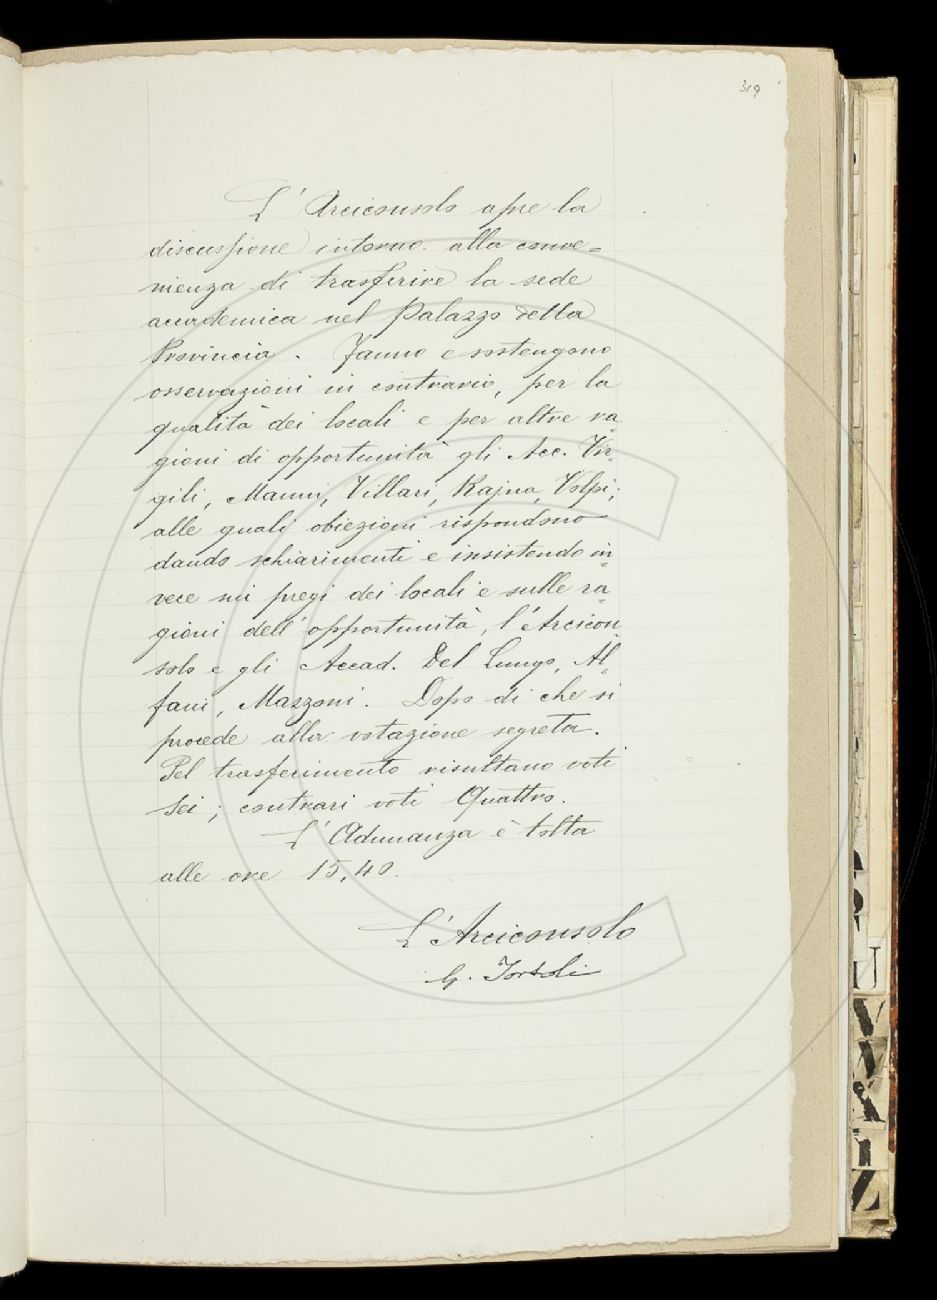 319
L' Arciconsolo apre la
discussione intorno alla conve=
nienza di trasferire la sede
accademica nel Palazzo della
Provincia. Fanno e sostengono
osservazioni in contrario, per la
qualità dei locali e per altre ra=
gioni di opportunità gli Acc. Vir=
gili, Manni, Villari, Rajna, Volpi;
alle quali obiezioni rispondono
dando schiarimenti e insistendo in=
vece sui pregi dei locali e sulle ra=
gioni dell' opportunità, l'Arcicon=
solo e gli Accad. Del Lungo, Al=
fani, Mazzoni. Dopo di che si
procede alla votazione segreta.
Pel trasferimento risultano voti
Sei; contrari voti Quattro.
L' Adunanza è tolta
alle ore 15,40.
L'Arciconsolo
G. Tortoli
U
V
W
X
Y
Z